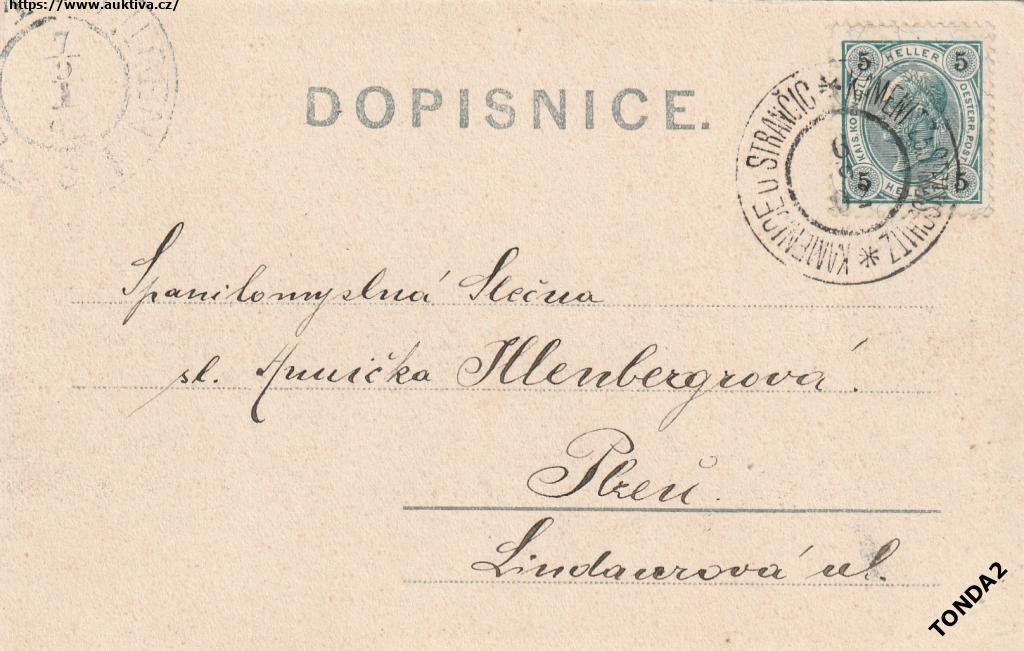 https://www.auktiva.cz/
DOPISNICE.
5 HELLER 5
KAIS. KÖNIGL. OESTERR. POST
5 HELLER 5
KAMENICE U STRANČIC * KAMENITZ *
Spanilomyslná Slečna
sl. Annička Illenbergrová
Plzeň
Lindaurová ul.
TONDA2